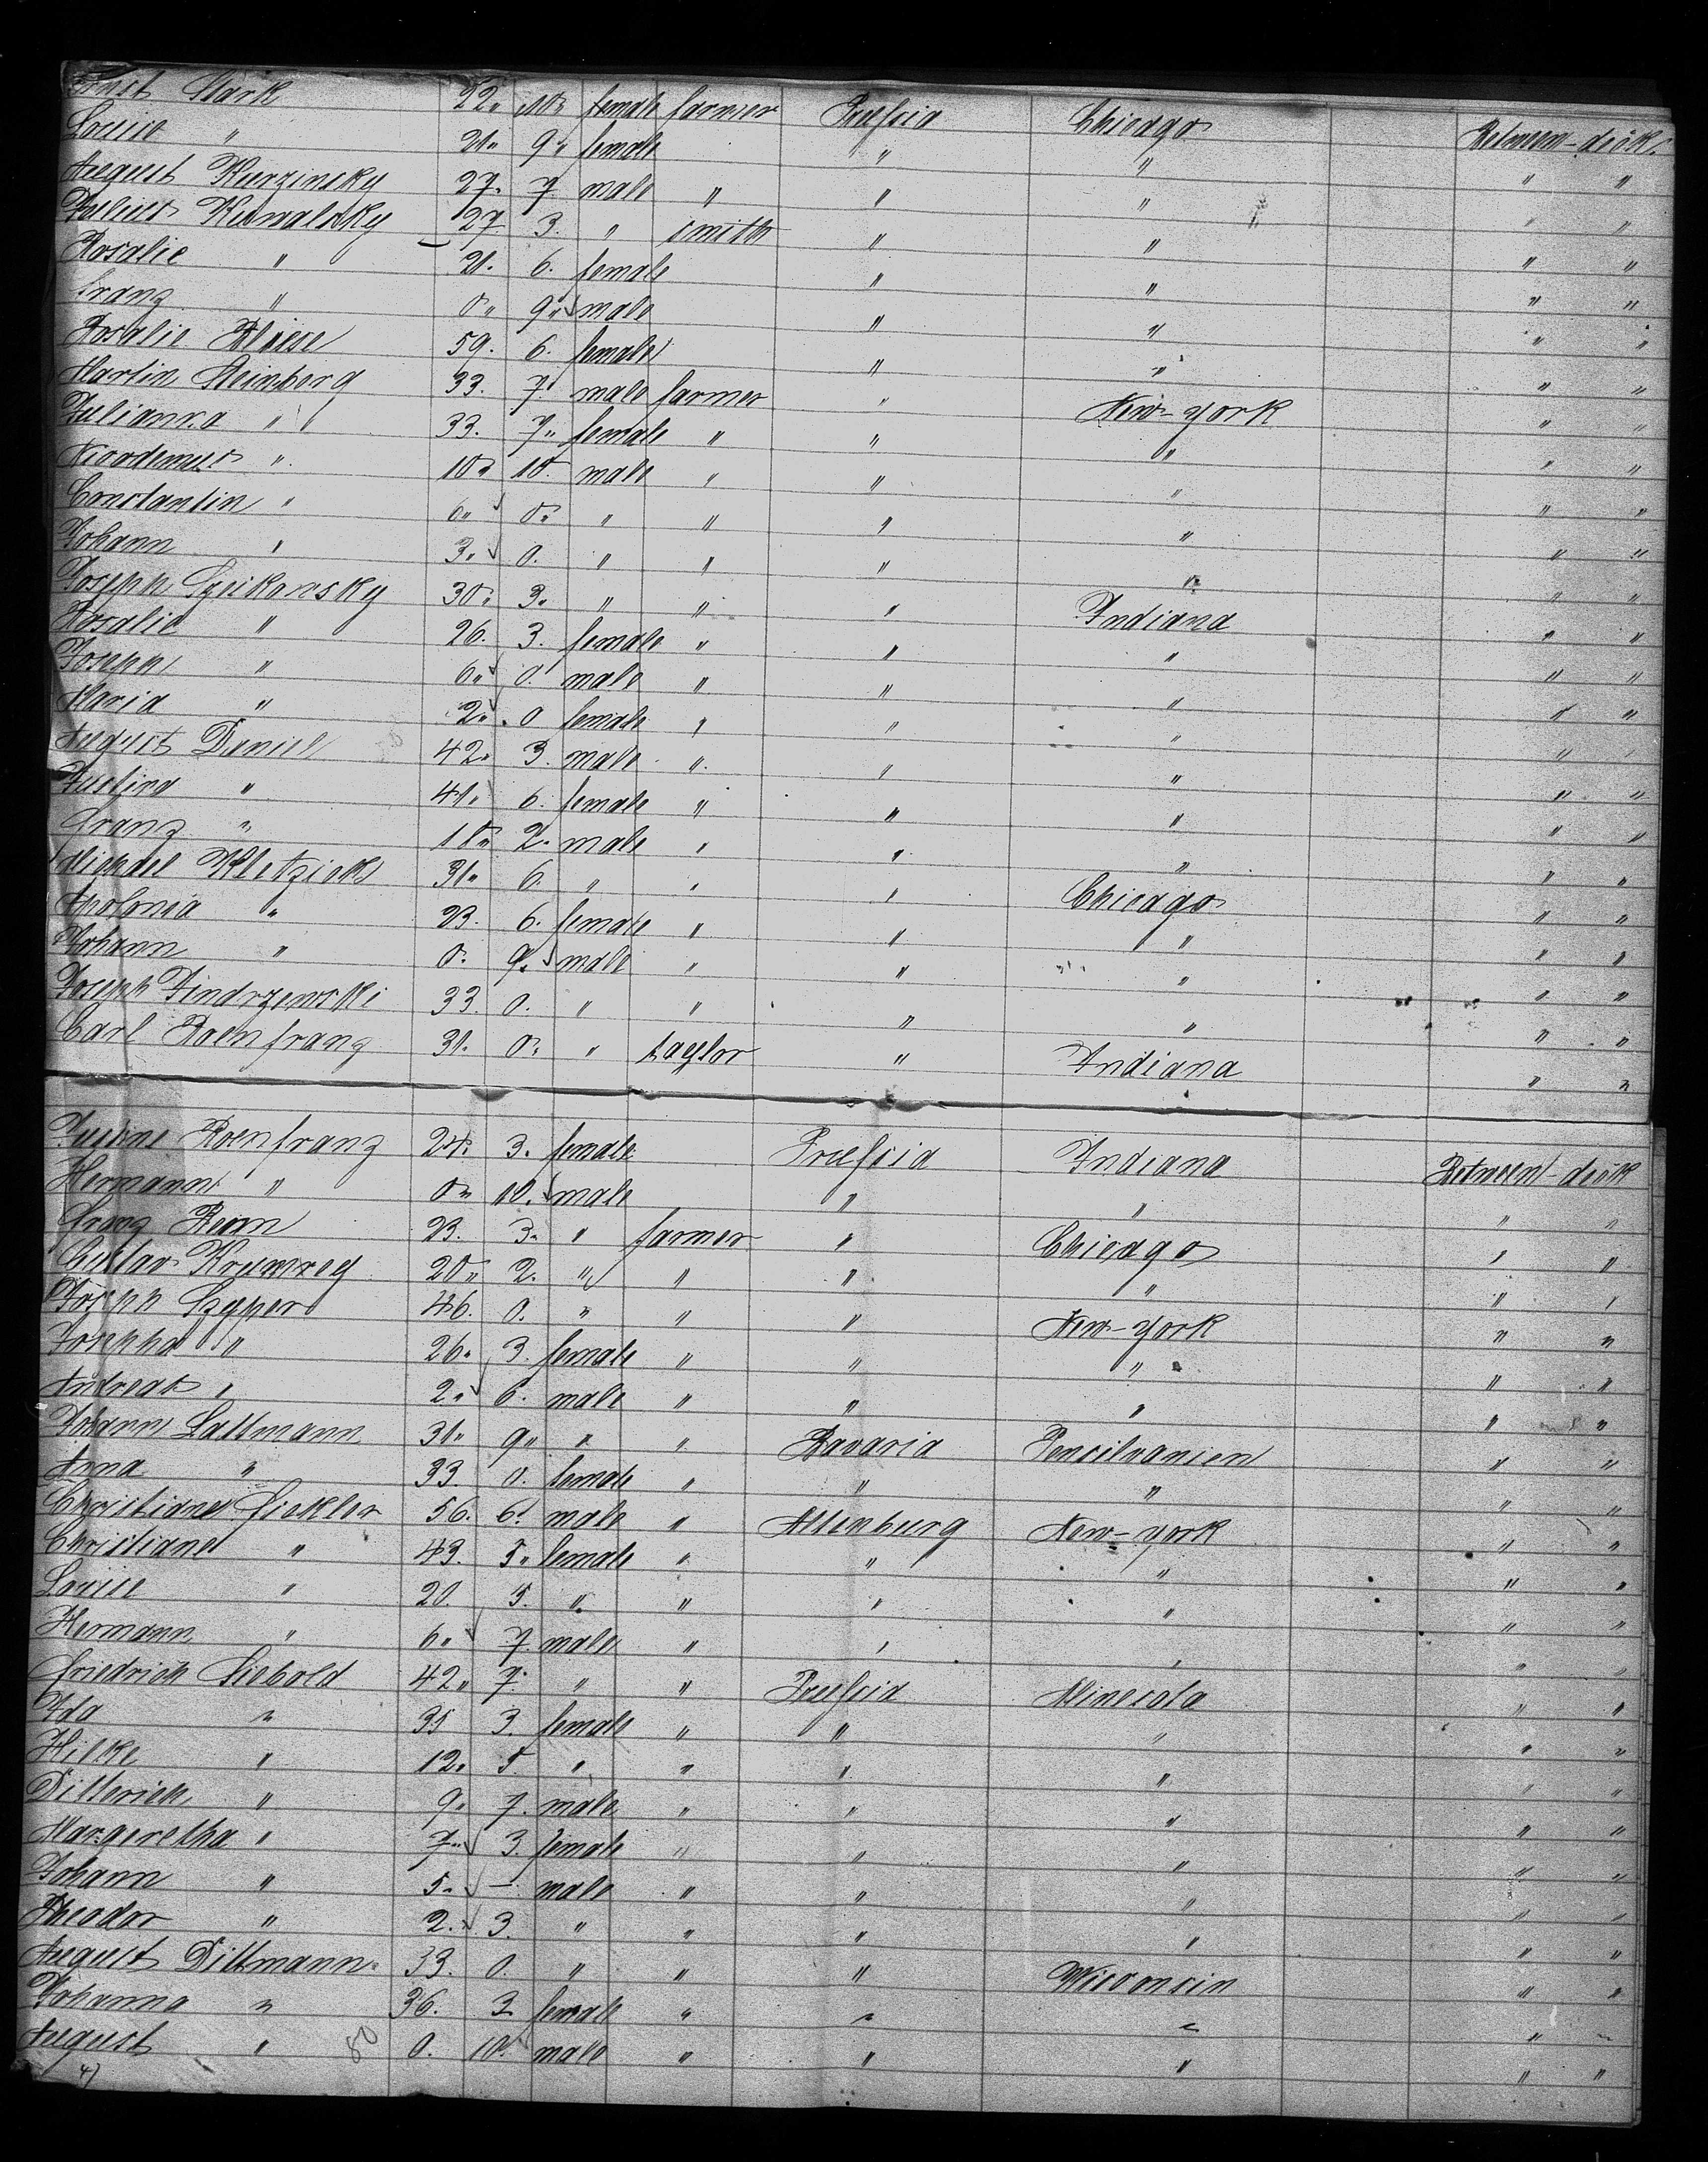 Ernst Stark 22. 10. female farmer Prussia Chicago Between-deck.
Louise " 21. 9. female " " " "
August Kurzinsky 27. 7. male " " " " "
Julius Kuwalsky 27. 3. " smith " " " "
Rosalie " 21. 6. female " " " "
Franz " 0. 9. male " " " "
Rosalie Bliese 59. 6. female " " " "
Martin Steinborg 33. 7. male farmer " New-York " "
Julianna " 33. 7. female " " " " "
Nicodemus " 10. 10. male " " " " "
Constantin " 6. 0. " " " " " "
Johann " 3. 0. " " " " " "
Joseph 30. 3. " " " Indiana " "
Rosalie " 26. 3. female " " " " "
Joseph " 6. 0. male " " " " "
Maria " 2. 0 female " " " " "
August Daniel 42. 3. male " " " " "
" 41. 6. female " " " " "
Franz " 10. 2. male " " " " "
Michael Kletzick 31. 6. " " " Chicago " "
Apolonia " 23. 6. female " " " " "
Johann " 0. 9. male " " " " "
Joseph Jindrzewski 33. 0. " " " " " "
Carl Roenfranz 31. 0. " taylor " Indiana " "
Roenfranz 24. 3. female Prussia Indiana Between-deck
Hermann " 0. 10. male " " " "
Franz Bern 23. 3. " farmer " Chicago " "
Gustav 20. 2. " " " " " "
Joseph Szyper 46. 0. " " " New-York " "
Josepha " 26. 3. female " " " " "
Andreas " 2. 6. male " " " " "
Johann Lattmann 31. 9. " " Bavaria Pensilvanien " "
Anna " 33. 0. female " " " " "
Christian Sickler 56. 6. male " Altenburg New-York " "
Christiane " 43. 5. female " " " " "
Louise " 20. 5. " " " " " "
Hermann " 6. 7. male " " " " "
Friedrich Siebold 42. 7. " " Prussia Minesota " "
Ida " 35 3. female " " " " "
Hilke " 12. 5. " " " " " "
Ditterich " 9. 7. male " " " " "
Margeretha " 7. 3. female " " " " "
Johann " 5. – male " " " " "
Theodor " 2. 3. " " " " " "
August Dittmann 33. 0. " " " Wisconsin " "
Johanna " 36. 3 female " " " " "
August " 80 0. 10. male " " " " "
4)